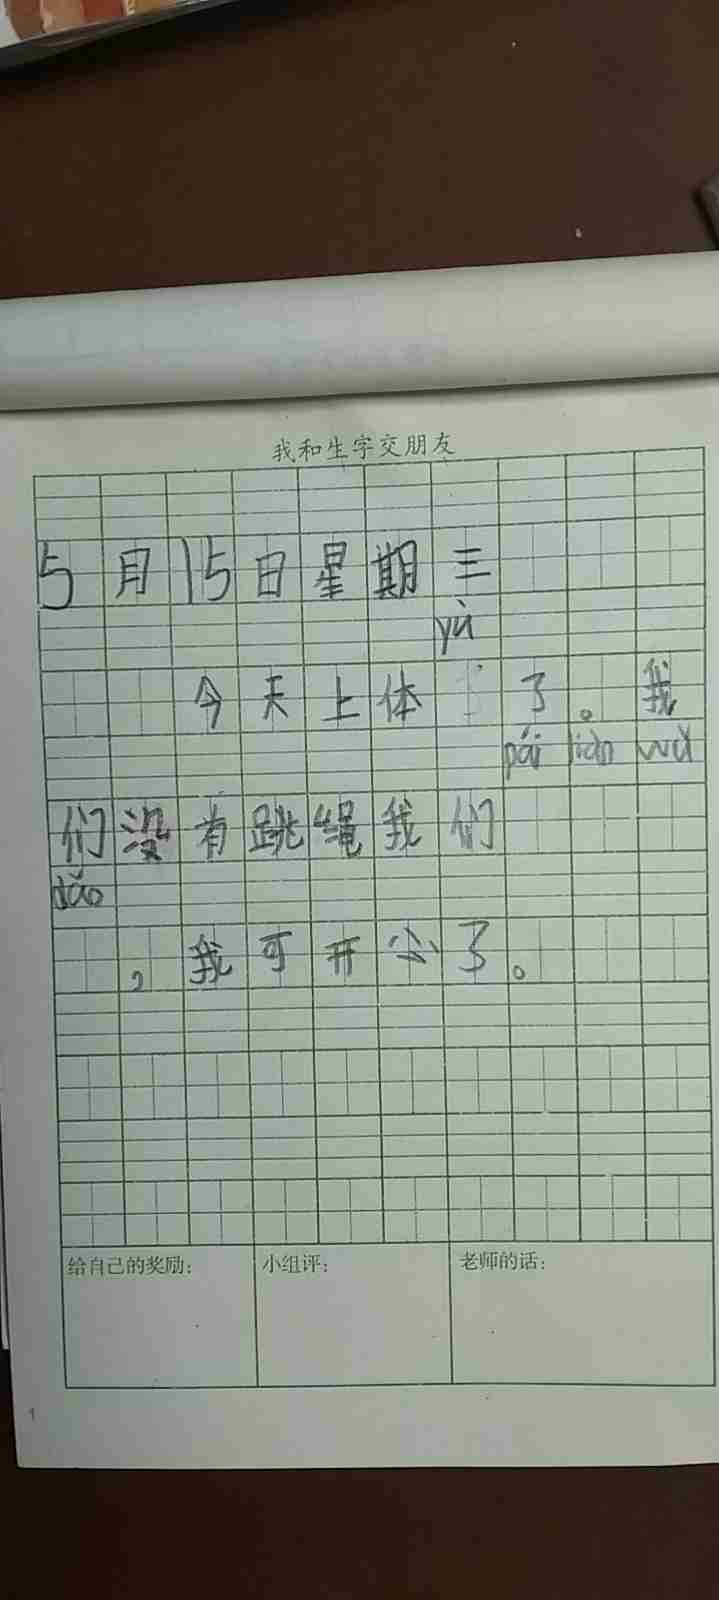 我和生字交朋友
5月15日星期三
yù
今天上体 了。我
pái liàn wǔ
们没有跳绳我们
dǎo
，我可开心了。
给自己的奖励：
小组评：
老师的话：
1